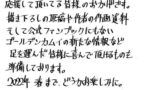 応援して頂いてる皆様のお力添え。
描き下ろしの短編や作者の作画資料
そして公式ファンブックにもない
ゴールデンカムイの新たな情報など
足を運んだ皆様に喜んで頂けるものを
準備しております。
2022年春まで、どうかお楽しみに。